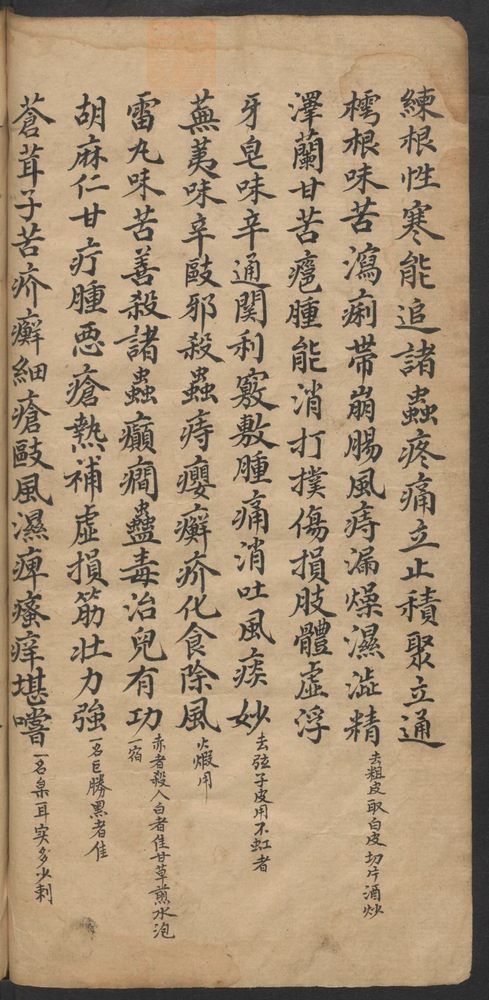 練根性寒能追諸蟲疼痛立止積聚立通
樗根味苦瀉痢帶崩腸風痔漏燥濕澁精 去粗皮取白皮切片酒炒
澤蘭甘苦癰腫能消打撲傷損肢體虛浮
牙皂味辛通関利竅敷腫痛消吐風痰妙 去弦子皮用不虹者
蕪荑味辛歐邪殺蟲痔癭癬疥化食除風 火煆用
雷丸味苦善殺諸蟲癲癇蠱毒治兒有功 赤者殺人白者佳甘草煎水泡一宿
胡麻仁甘疔腫恶瘡熱補虛損筋壮力強 一名巨勝黑者佳
蒼茸子苦疥癬細瘡歐風濕痺瘙痒堪嚐 一名枲耳实多少刺